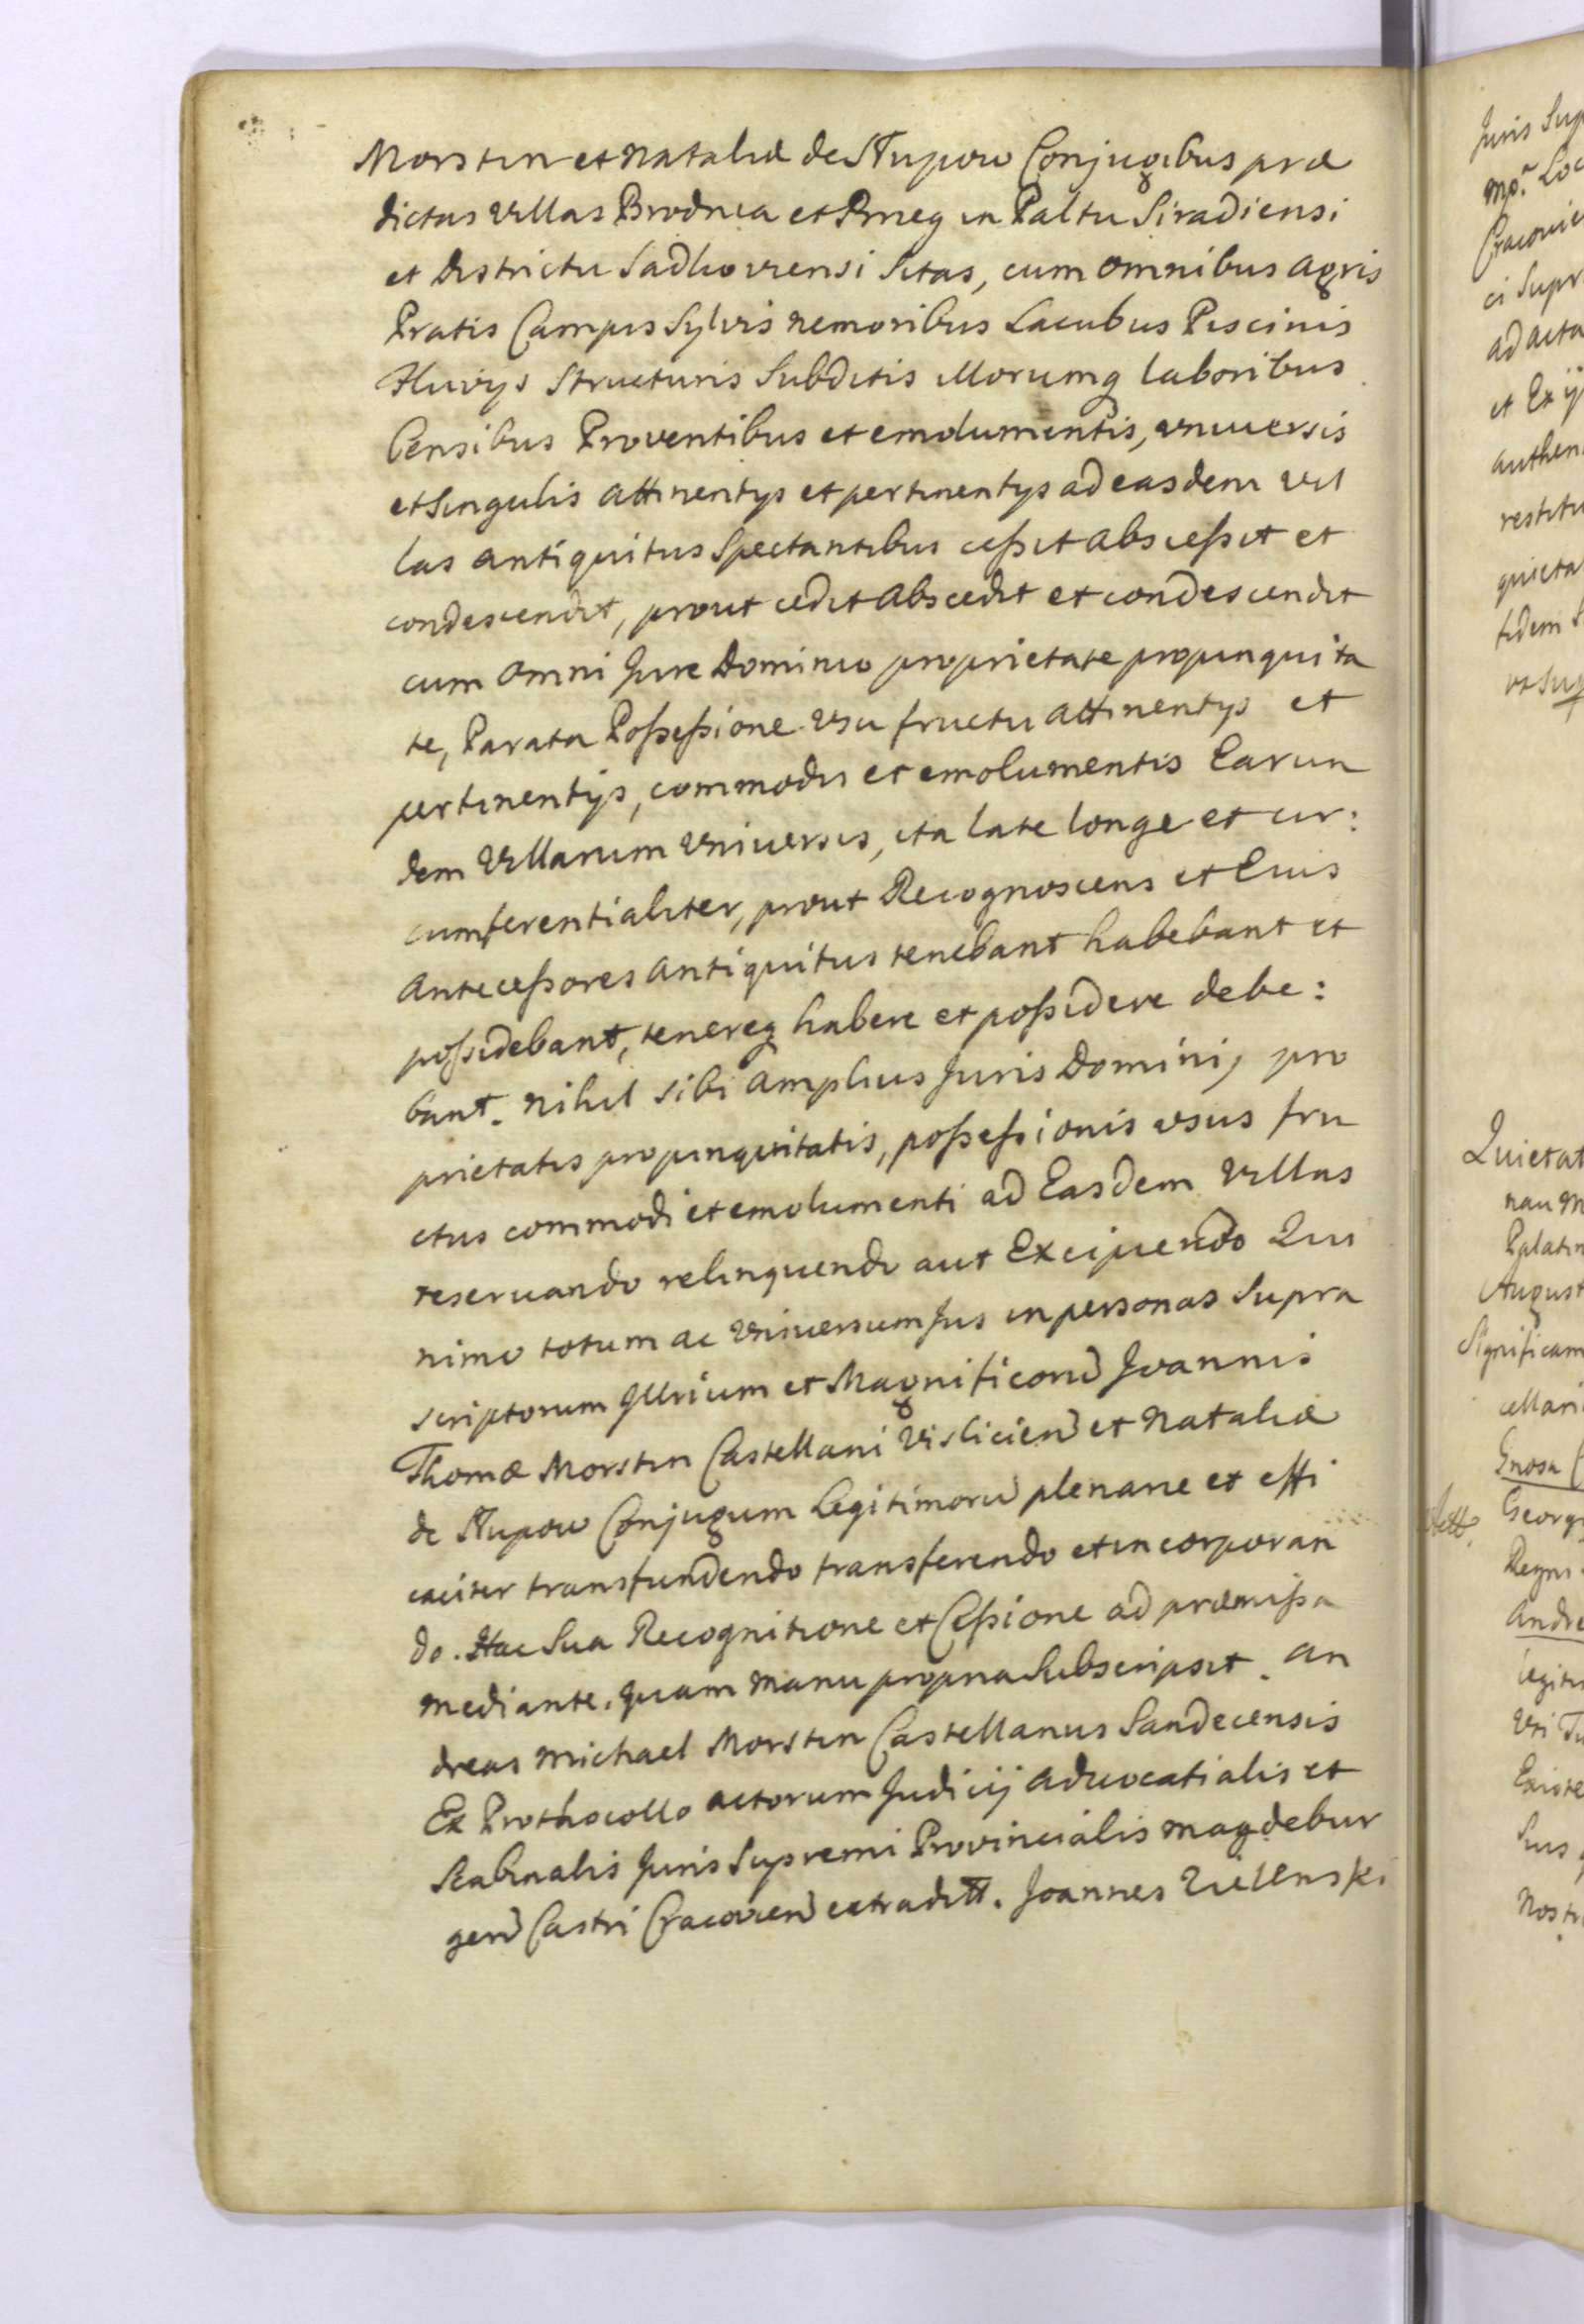 Morstin et Nataliæ de Stupow Conjugibus præ
dictas Villas Brodnia et Brneg in Paltu Siradiensi
et Districtu Sadkoviensi Sitas, cum omnibus agris
Pratis Campis Sylvis nemoribus Lacubus Piscinis
Fluvijs Structuris Subditis illorumq laboribus
Censibus Proventibus et emolumentis, universis
et Singulis attinentijs et pertinentijs ad easdem vil
las antiquitus Spectantibus cessit abscessit et
condescendit, prout cedit abscedit et condescendit
cum omni Jure Dominio proprietate propinquita
te, Parata Possessione usu fructu attinentijs et
pertinentijs, commodis et emolumentis Earun
dem Villarum Universis, ita late longe et cir:
cumferentialiter, prout Recognoscens et Eius
antecessores antiquitus tenebant habebant et
possidebant, tenereq habere et possidere debe:
bant. nihil sibi amplius Juris Dominij pro
prietatis propinquitatis, possessionis usus fru
ctus commodi et emolumenti ad Easdem Villas
reservando relinquendo aut Excipiendo Qui
nimo totum ac Universum Jus in personas Supra
scriptorum Jllrium et Magnificorum Joannis
Thomæ Morstin Castellani Vislicien et Nataliæ
de Stupow Conjugum Legitimoru plenarie et effi
caciter transfundendo transferendo et incorporan
do. Hac Sua Recognitione et Cessione ad præmissa
mediante. quam manu propria Subscripsit. An
dreas Michael Morstin Castellanus Sandecensis
Ex Prothocollo actorum Judicij advocatialis et
Scabinalis Juris Supremi Provincialis magdebur
gen Castri Cracovien extraditt. Joannes
Juris
Loc
ad acta
et Ex ij
authen
restitu
quieta
Quietat
Palatin
August
Significam
cellari
Georg
Regni
Andre
legiti
Nostr